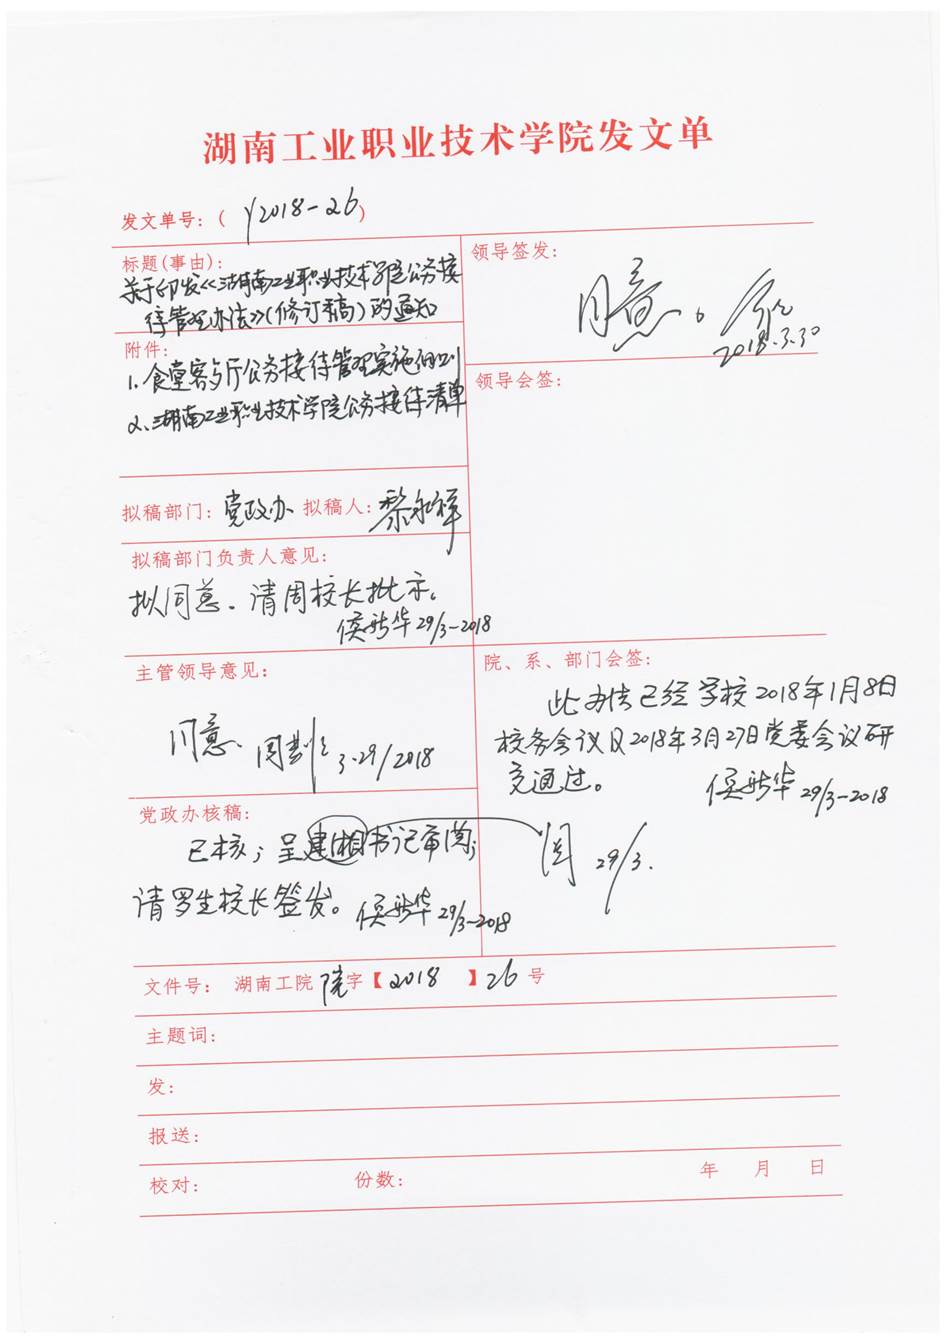 湖南工业职业技术学院发文单
发文单号：( y2018-26 )
标题(事由)：
关于印发《湖南工业职业技术学院公务接
待管理办法》（修订稿）的通知
附件：
1.食堂客与厅公务接待管理实施细则
2.湖南工业职业技术学院公务接待清单
拟稿部门：党政办 拟稿人：黎
拟稿部门负责人意见：
拟同意。请周校长批示。
侯新华 29/3-2018
主管领导意见：
同意. 周 3.29/2018
党政办核稿：
已核；呈建湘书记审阅；
请罗生校长签发。侯新华 29/3-2018
领导签发：
同意。
2018.3.30
领导会签：
院、系、部门会签：
此办法已经学校2018年1月8日
校务会议及2018年3月27日党委会议研
究通过。
侯新华 29/3-2018
阅 29/3.
文件号： 湖南工院院字【2018】26号
主题词：
发：
报送：
校对： 份数： 年 月 日